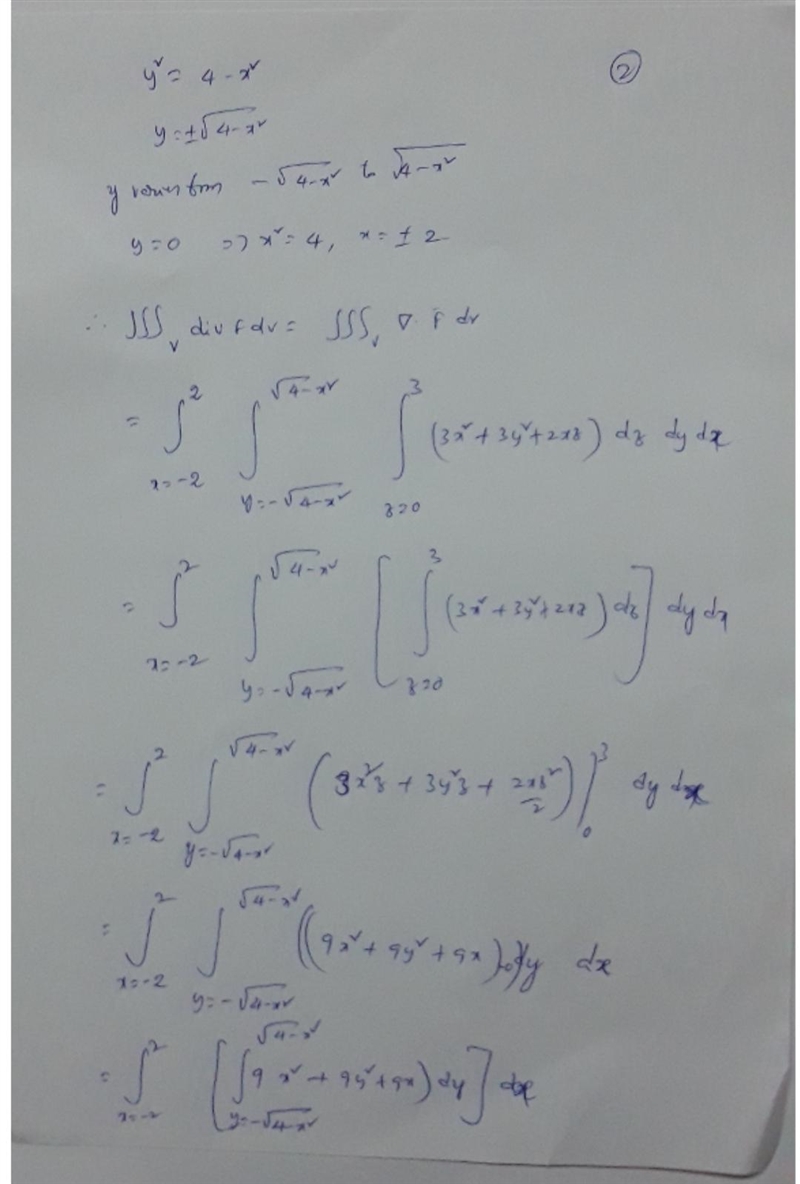 ②
y² = 4 - x²
y = ±√(4-x²)
y varies from -√(4-x²) to √(4-x²)
y = 0 ⇒ x² = 4, x = ± 2
∴ ∭_V div F dv = ∭_V ∇. F̄ dv
= ∫_{x=-2}^{2} ∫_{y=-√(4-x²)}^{√(4-x²)} ∫_{z=0}^{3} (3x² + 3y² + 2xz) dz dy dx
= ∫_{x=-2}^{2} ∫_{y=-√(4-x²)}^{√(4-x²)} [ ∫_{z=0}^{3} (3x² + 3y² + 2xz) dz ] dy dx
= ∫_{x=-2}^{2} ∫_{y=-√(4-x²)}^{√(4-x²)} (3x²z + 3y²z + 2xz²/2) ]_0^3 dy dx
= ∫_{x=-2}^{2} ∫_{y=-√(4-x²)}^{√(4-x²)} ((9x² + 9y² + 9x) dy dx
= ∫_{x=-2}^{2} [ ∫_{y=-√(4-x²)}^{√(4-x²)} 9x² + 9y² + 9x) dy ] dx